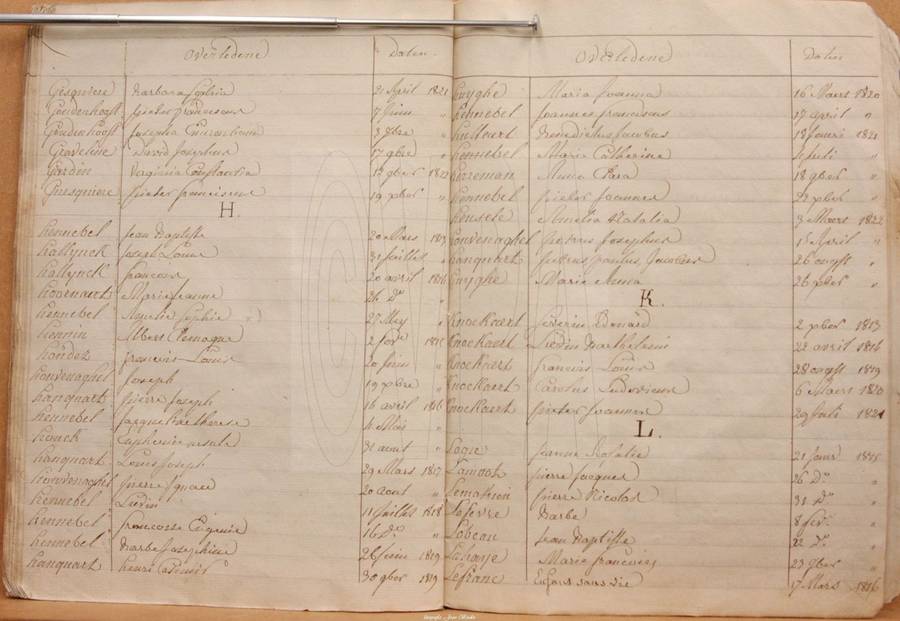 Overledene Daten
Gesquiere Barbara Sophia 21 April 1821
Goudenhooft pieter franciscus 7 Juni "
Goudenhooft Josepha 3 9bre "
Graveline David Josephus 17 9bre "
Gardin Virginia Constantia 13 9ber 1822
Gnesquiere pieter franciscus 19 xber "
H.
hennebel Jean Baptiste 20 Mars 1813
hallynck Joseph Louis 31 Juillet "
hallynck francois 20 avril 1814
hoornaert Marie Jeanne 26 do "
hennebel Amelie Sophie 27 Mey "
hennin Albert 2 1815
handez francois Louis 20 Juin "
houvenaghel Joseph 19 xbre "
hanquart pierre Joseph 16 avril 1816
hennebel Jacqueline therese 4 Mai "
houck Euphenie ursule 31 aout "
hanquart Louis Joseph 29 Mars 1817
houvenaghel pierre Ignace 20 aout "
hennebel Lievin 11 Juillet 1818
hennebel francoise Eugenie 16 do "
hennebel Barbe Josephine 26 Juin 1819
hanquart henri 30 9ber 1819
Overledene Daten
huyghe Maria Joanna 16 Maert 1820
hennebel Joannes franciscus 17 april "
hullaert Benedictus Jacobus 18 Januari 1821
hennebel Marie Catherine 4 Juli "
herreman Maria Clara 18 9ber "
hennebel pieter Joannes 22 xber "
Amelia Natalia 3 Maert 1822
houvenaghel petrus Josephus 15 April "
hanquart petrus paulus Jacobus 26 ougst "
huyghe Marie Anna 26 xber "
K.
Knockaert Severin Benard 2 xber 1813
Knockaert Lievin Barthelemi 22 avril 1814
Knockaert francois Louis 28 ougst 1819
Knockaert Carolus Ludovicus 6 Maert 1820
Knockaert pieter Joannes 29 Juli 1821
L.
Logie Jeanne Natalie 21 Janv 1815
Lamoot pierre Jacques 26 do "
Lemahieu pierre Nicolas 31 do "
Lefevre Barbe 8 fev. "
Lobeau Jean Baptiste 22 do "
Lahaye Marie francoise 23 9ber "
Lefranc Enfant sans vie 17 Mars 1816